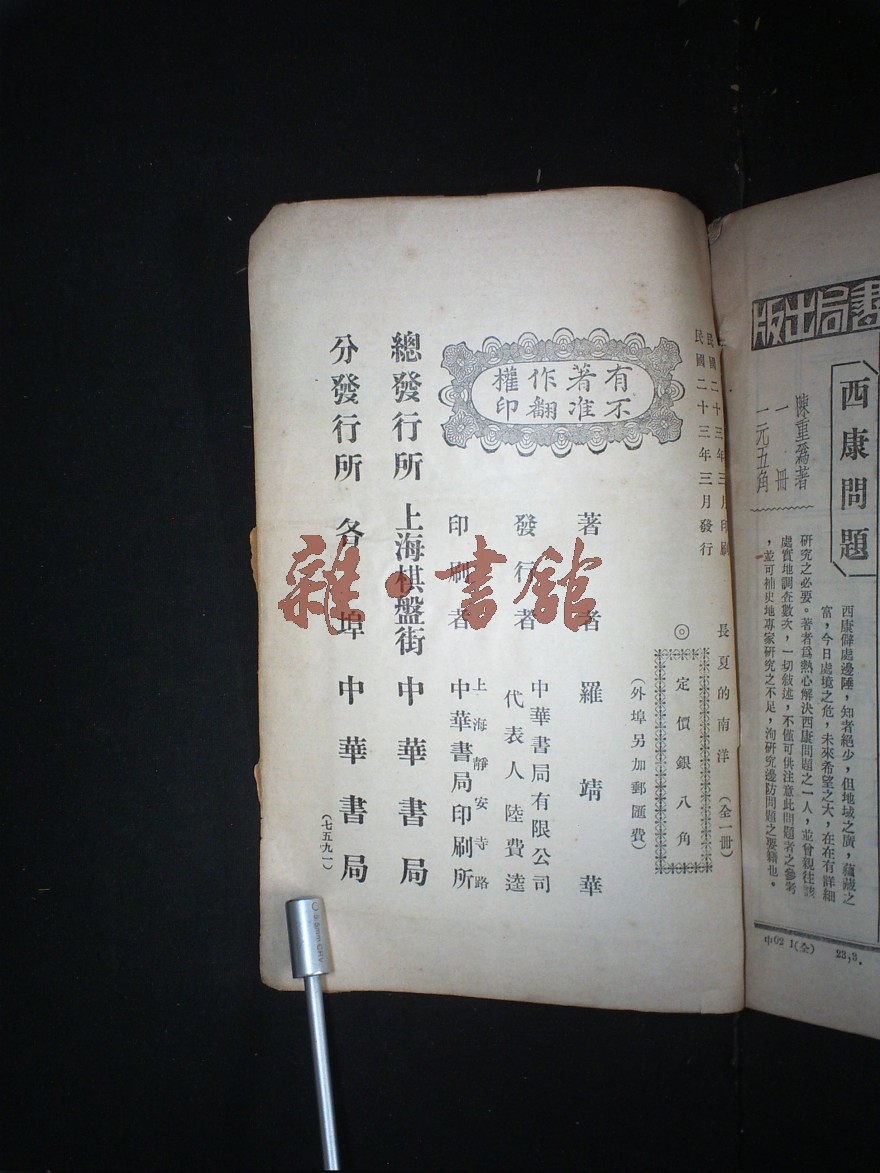 書局出版
西康問題
陳重爲著
一冊
一元五角
西康僻處邊陲，知者絕少，但地域之廣，蘊藏之
富，今日處境之危，未來希望之大，在在有詳細
研究之必要。著者爲熱心解決西康問題之一人，並曾親往該
處實地調查數次，一切敍述，不僅可供注意此問題者之參考
，並可補史地專家研究之不足，洵研究邊防問題之要籍也。
中02 1(全) 23,3.
民國二十三年三月印刷
民國二十三年三月發行
長夏的南洋（全一冊）
◎定價銀八角
（外埠另加郵匯費）
有著作權
不准翻印
著者 羅靖華
發行者 中華書局有限公司
代表人 陸費逵
印刷者 上海靜安寺路
中華書局印刷所
總發行所 上海棋盤街 中華書局
分發行所 各埠 中華書局
（七五九一）
雜·書館